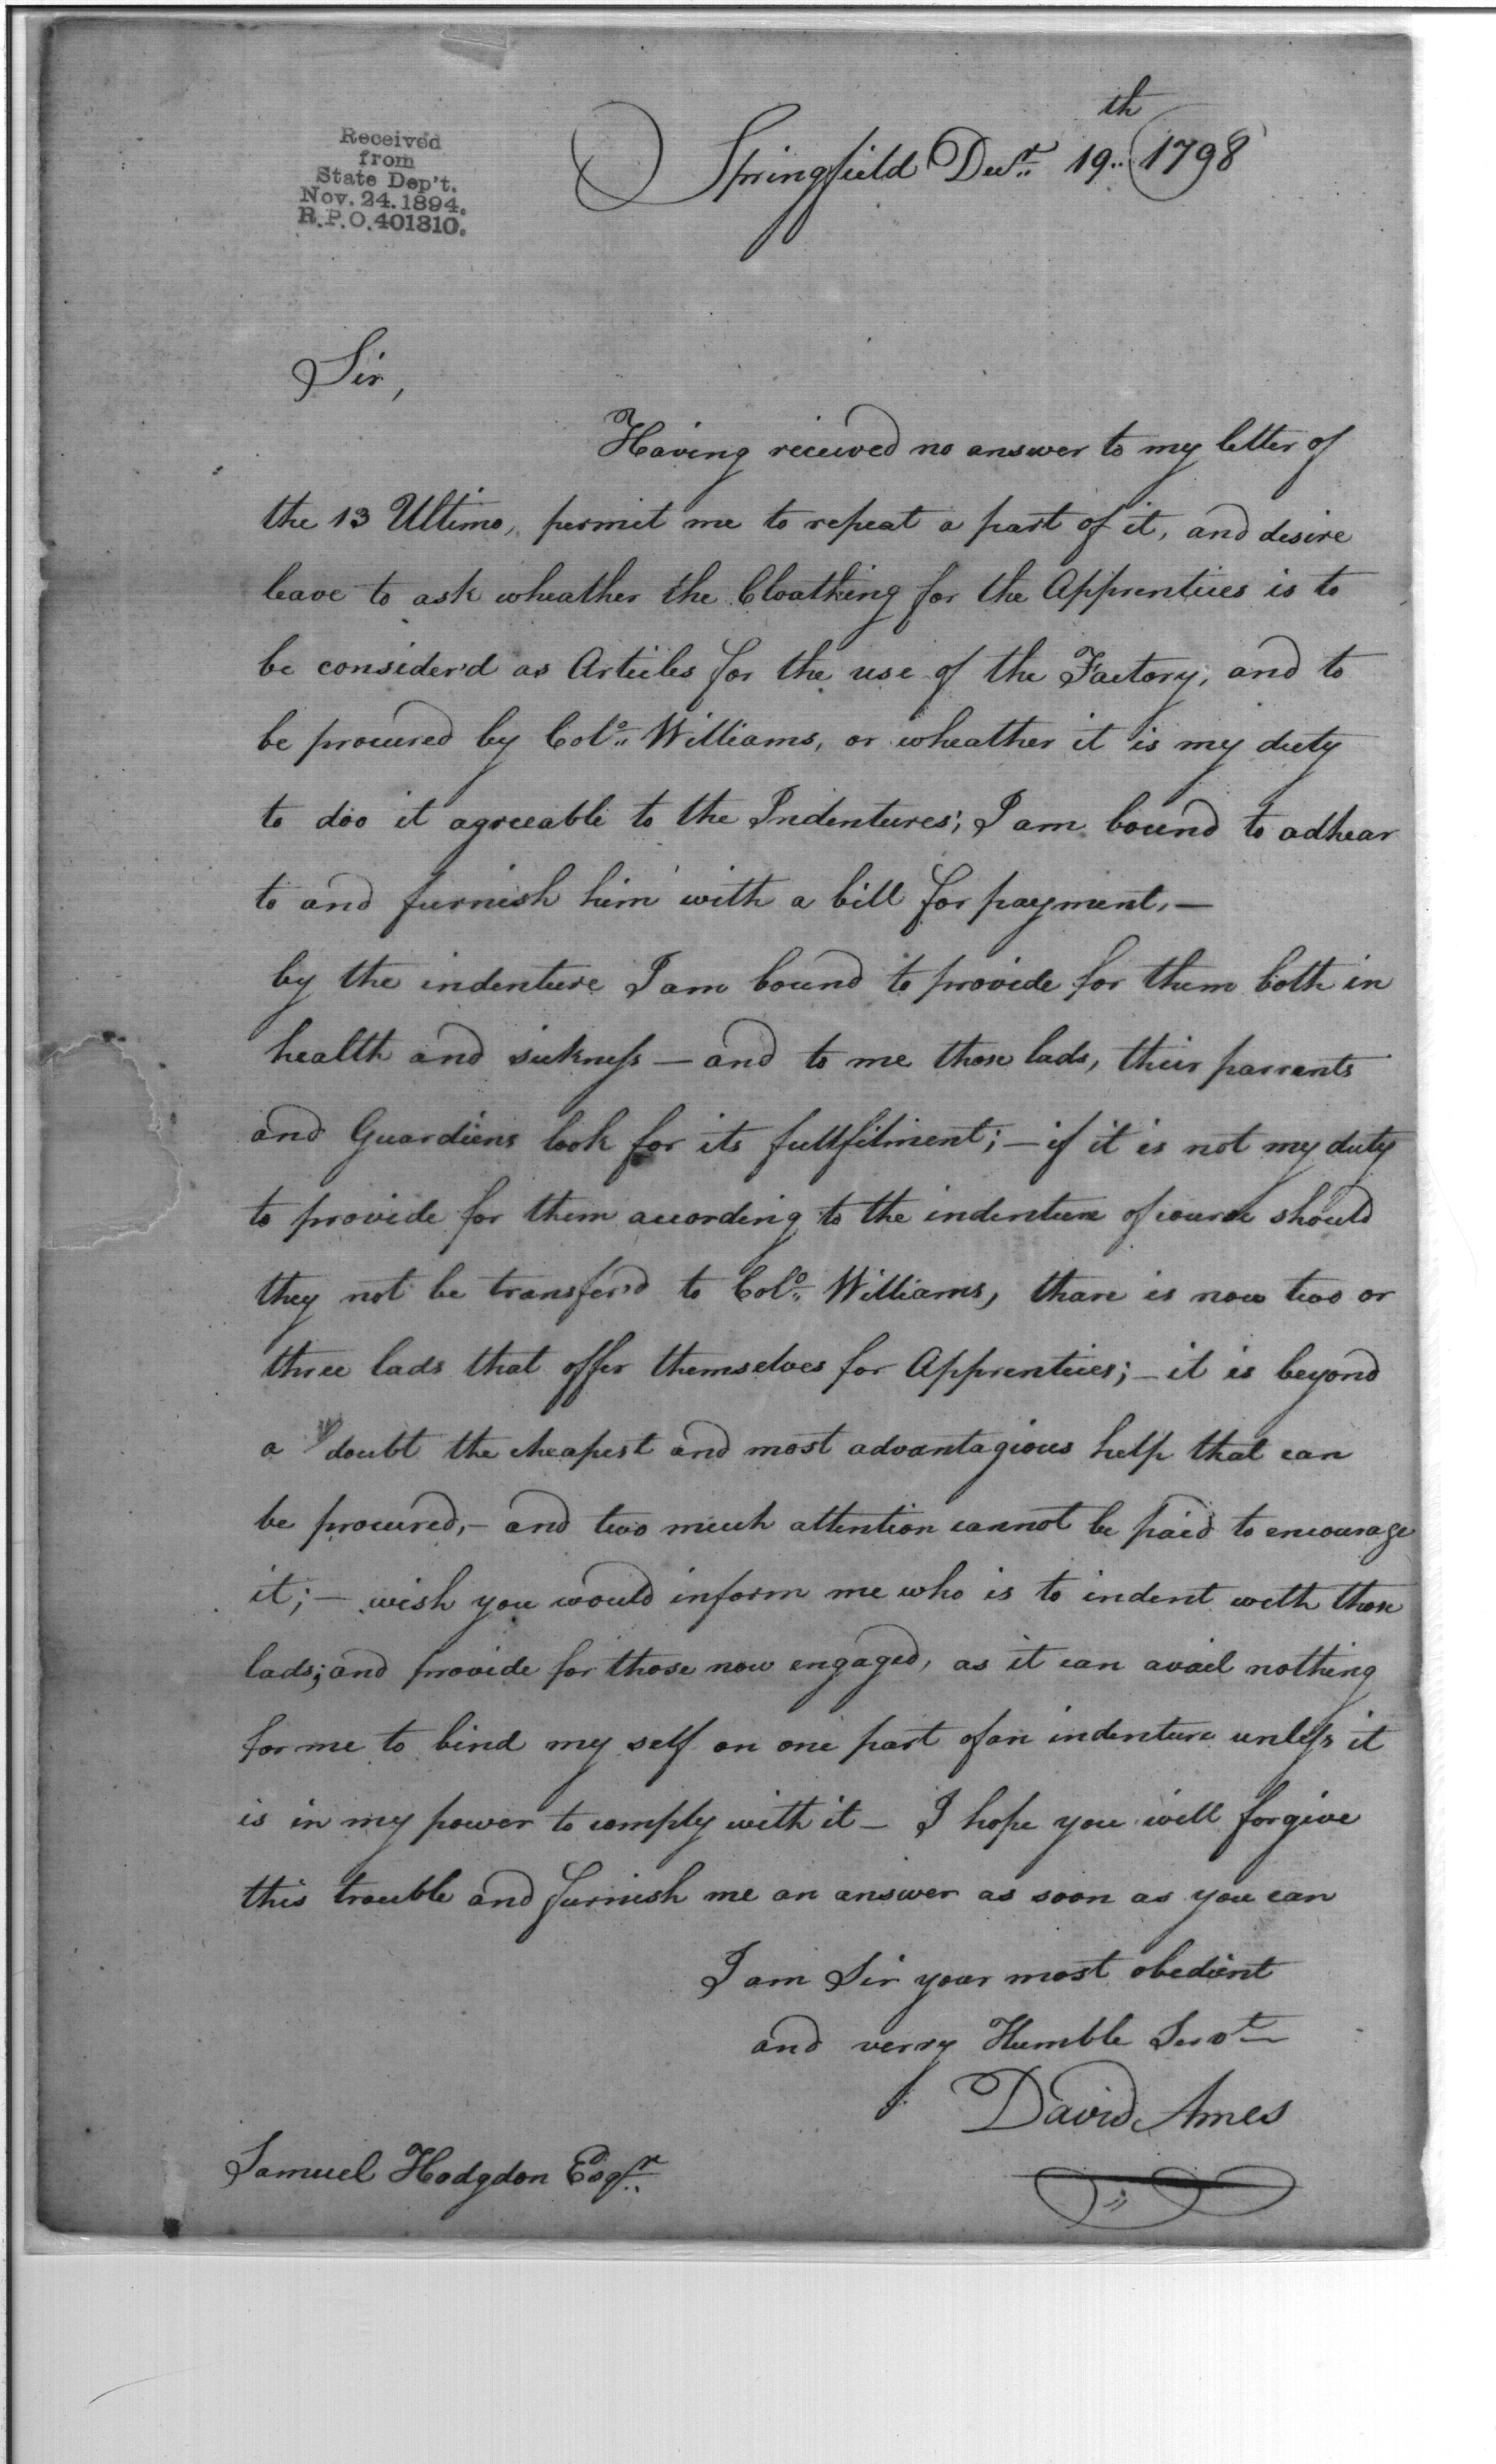 Received
from
State Dep't.
Nov. 24. 1894.
R.P.O. 401310.
Springfield Decr. 19th 1798
Sir,
Having received no answer to my letter of
the 13 Ultimo, permit me to repeat a part of it, and desire
leave to ask wheather the Cloathing for the Apprentices is to
be consider'd as Articles for the use of the Factory, and to
be procured by Colo. Williams, or wheather it is my duty
to doo it agreeable to the Indentures; I am bound to adhear
to and furnish him with a bill for payment,—
by the indenture I am bound to provide for them both in
health and sickness — and to me those lads, their parrents
and Guardiens look for its fullfilment; — if it is not my duty
to provide for them according to the indenture of course should
they not be transfer'd to Colo. Williams, thare is now two or
three lads that offer themselves for Apprentices; — it is beyond
a doubt the cheapest and most advantagious help that can
be procured, — and two much attention cannot be paid to encourage
it; — wish you would inform me who is to indent with those
lads; and provide for those now engaged, as it can avail nothing
for me to bind my self on one part of an indenture unless it
is in my power to comply with it — I hope you will forgive
this trouble and furnish me an answer as soon as you can
I am Sir your most obedient
and verry Humble Servt
David Ames
Samuel Hodgdon Esqr.